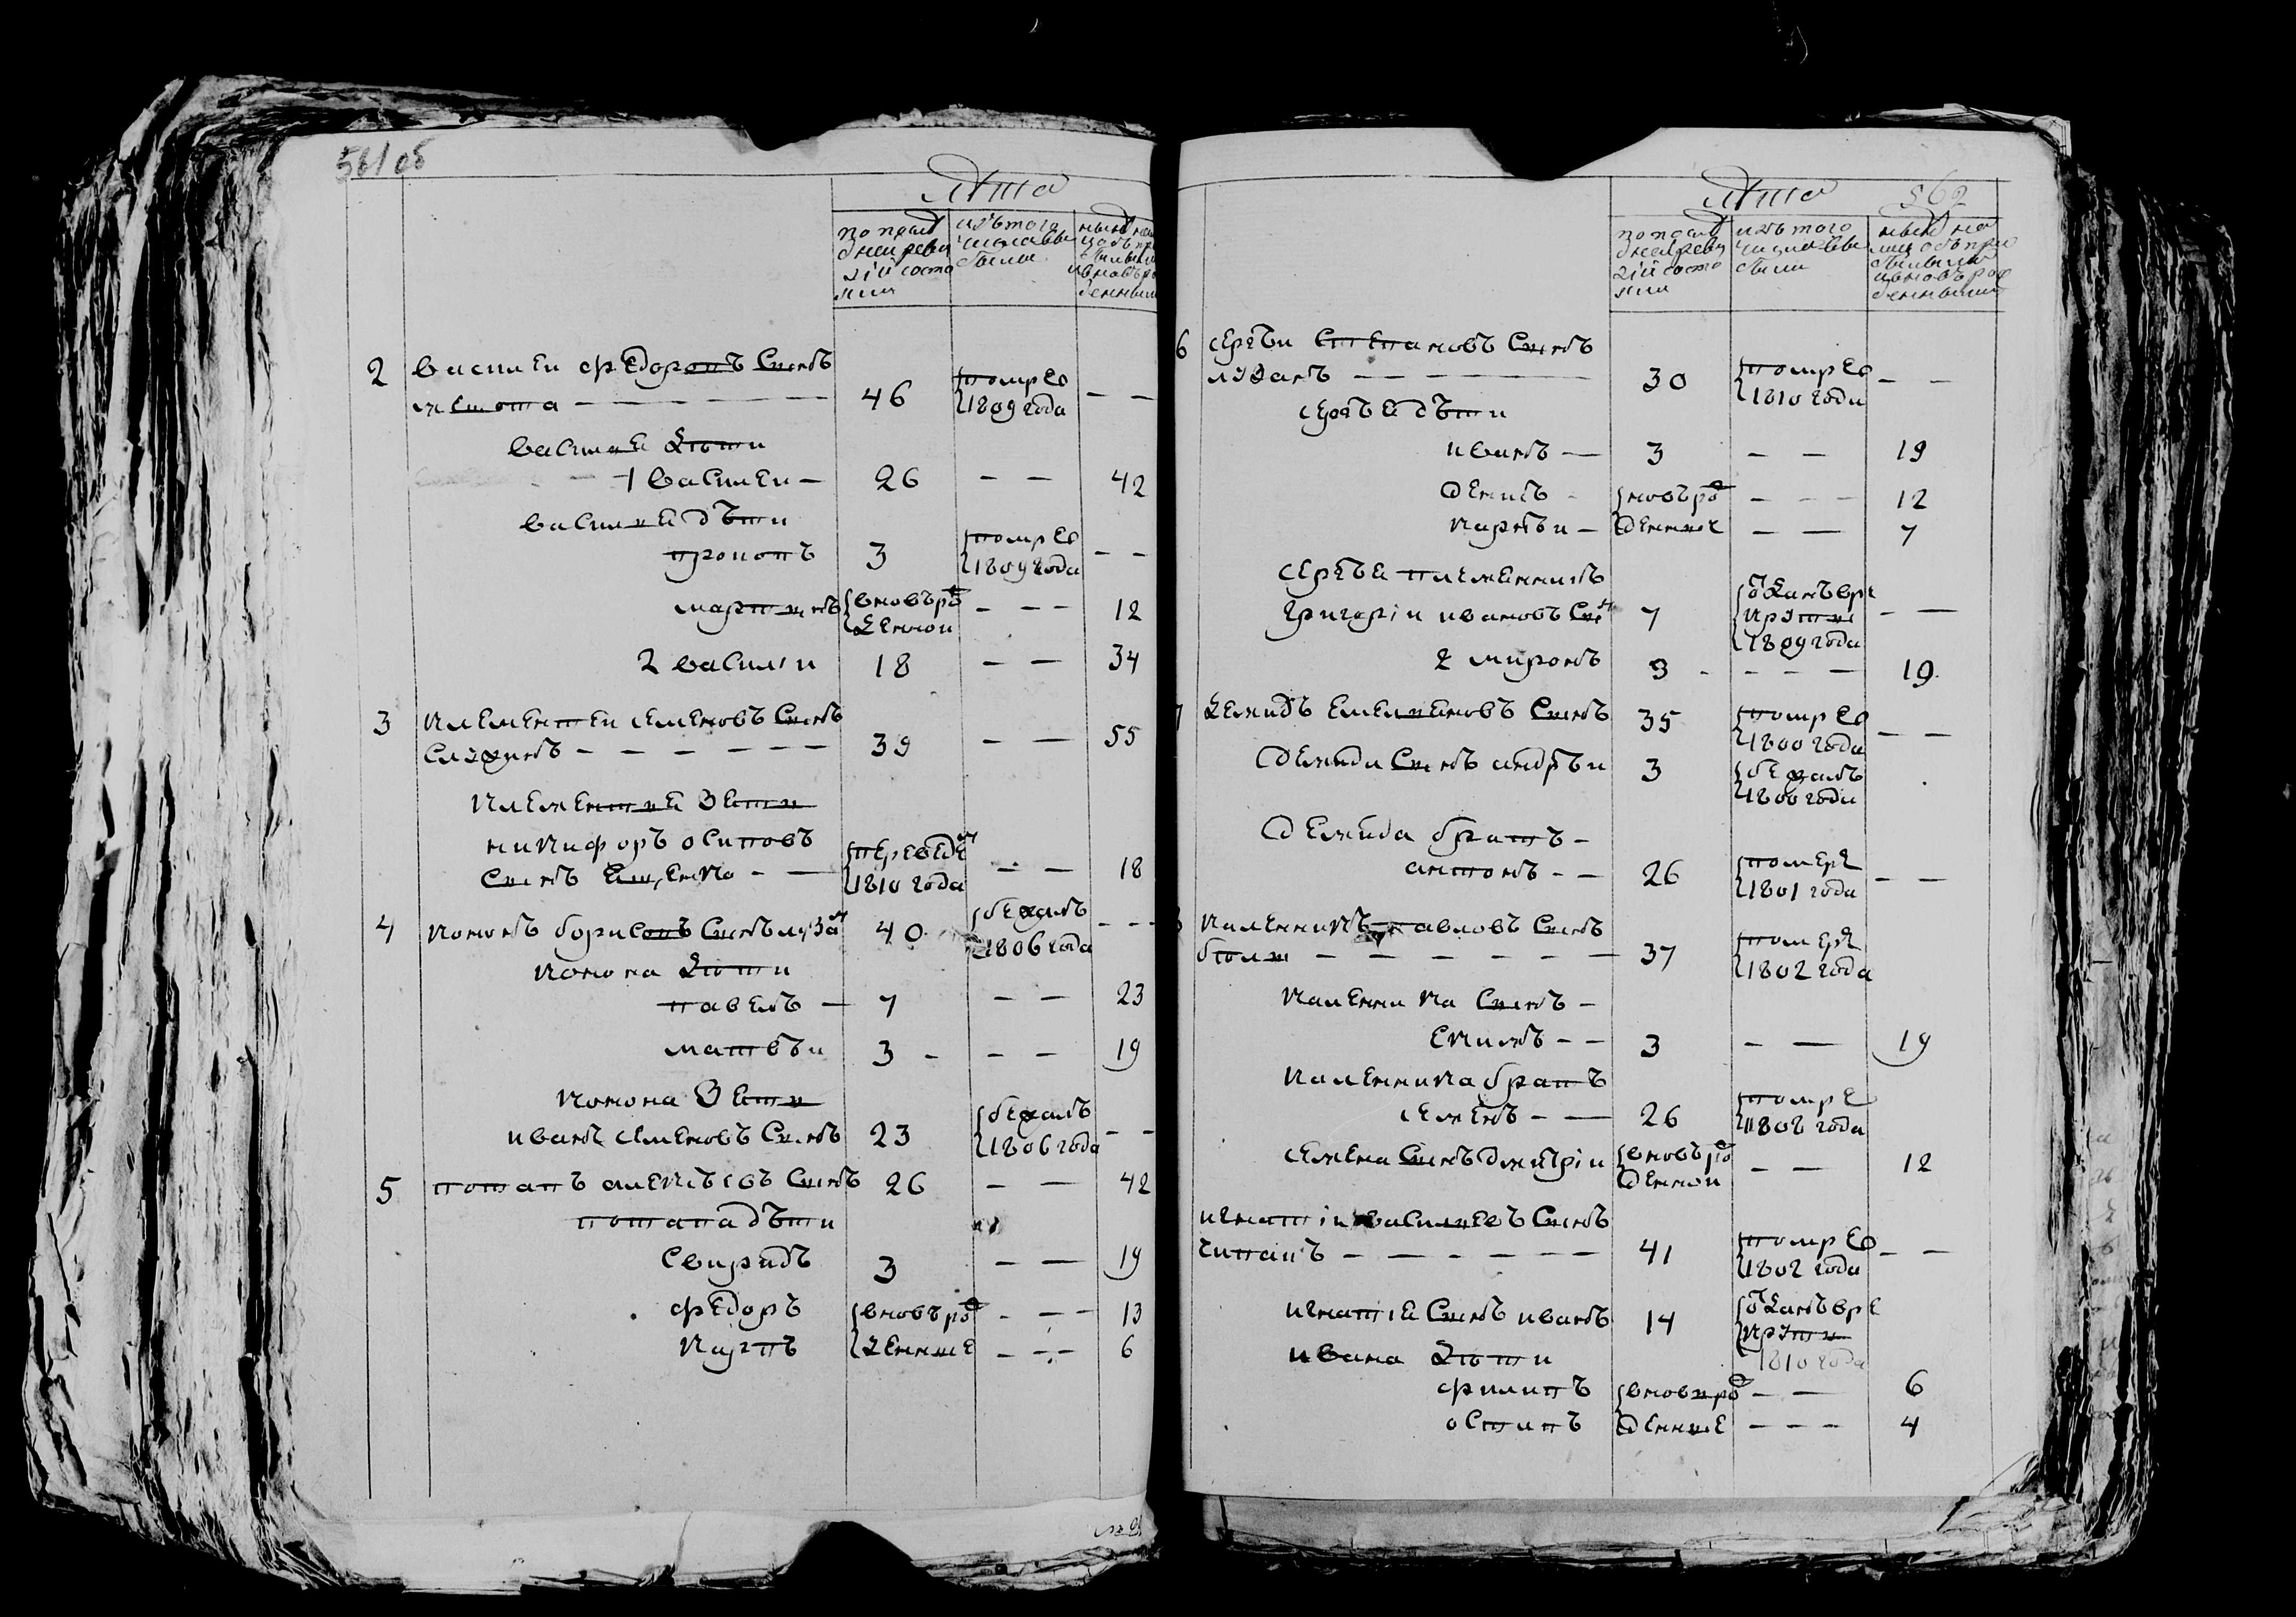 561/об
Лѣта
по послѣ
дней реви
зіи состо
яли
изъ того
числа вы
были
2 василей федоровъ Сынъ
46 помре
1809 года — —
василея дѣти
1 василеи — 26 — — 42
василея дѣти
прокопъ 3 помре
1809 года — —
мартынъ вновьро
жденнои — — — 12
2 василии 18 — — 34
3 клементеи семеновъ Сынъ
39 — — 55
клементия зять
никифоръ осиповъ
Сынъ ещенко — — переведен
1810 года — — 18
4 кононъ борисовъ Сынъ лузан 40 бежалъ
1806 года — — —
конона дѣти
павелъ — 7 — — 23
матвѣи 3 — — — 19
конона зять
иванъ семеновъ Сынъ 23 бежалъ
1806 года — —
5 потапъ алексѣевъ Сынъ 26 — — 42
потапа дѣти
Свиридъ 3 — — 19
федоръ вновьро — — — 13
карпъ жденные — — — 6
562
Лѣта
по послѣ
дней реви
зіи состо
яли
изъ того
числа вы
были
ныне на
лицо съ при
былыми
и вновь рож
денными
6 сергѣи Степановъ Сынъ
лузанъ — — — 30 помре
1810 года — —
сергѣя дѣти
иванъ — 3 — — 19
денисъ — вновьро — — — 12
сергѣя племянникъ
григоріи ивановъ Сынъ 7 отданъ в ре
круты
1809 года — —
2 миронъ 3 — — — — 19
демидъ емельяновъ Сынъ 35 помре
1800 года — —
демида Сынъ андрѣи 3 бежалъ
1800 года
демида братъ —
антонъ — — 26 померъ
1801 года — —
каленикъ павловъ Сынъ
37 померъ
1802 года
каленика Сынъ —
екимъ — — 3 — — 19
каленика братъ
семенъ — — 26 помре
1808 года
семена Сынъ дмитріи вновьро
жденнои — — 12
игнатіи васильевъ Сынъ
— — — — — 41 помре
1802 года — —
игнатія Сынъ иванъ 14 отданъ в ре
круты
1810 года
ивана дѣти
филипъ вновьро — — 6
остапъ жденные — — — 4